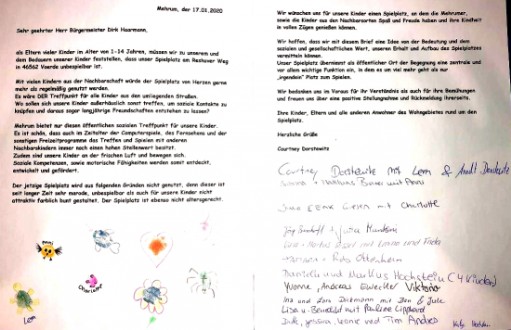 Mehrum, der 17.01.2020
Sehr geehrter Herr Bürgermeister Dirk Haarmann,
als Eltern vieler Kinder im Alter von 1-14 Jahren, müssen wir zu unserem und
dem Bedauern unserer Kinder feststellen, dass unser Spielplatz am Reshover Weg
in 46562 Voerde unbespielbar ist.
Mit vielen Kindern aus der Nachbarschaft würde der Spielplatz von Herzen gerne
mehr als regelmäßig genutzt werden.
Es wäre DER Treffpunkt für alle Kinder aus den umliegenden Straßen.
Wo sollen sich unsere Kinder außerhäuslich sonst treffen, um soziale Kontakte zu
knüpfen und daraus sogar langjährige Freundschaften entstehen zu lassen?
Mehrum bietet nur diesen öffentlichen sozialen Treffpunkt für unsere Kinder.
Es ist schön, dass auch im Zeitalter der Computerspiele, des Fernsehens und der
sonstigen Freizeitprogramme das Treffen und Spielen mit anderen
Nachbarskindern immer noch einen hohen Stellenwert besitzt.
Zudem sind unsere Kinder an der frischen Luft und bewegen sich.
Soziale Kompetenzen, sowie motorische Fähigkeiten werden somit entdeckt,
entwickelt und gefördert.
Der jetzige Spielplatz wird aus folgenden Gründen nicht genutzt, denn dieser ist
seit langer Zeit sehr marode, unbespielbar als auch für unsere Kinder nicht
attraktiv farblich bunt gestaltet. Der Spielplatz ist ebenso nicht altersgerecht.
Wir wünschen uns für unsere Kinder einen Spielplatz, an dem die Mehrumer,
sowie die Kinder aus den Nachbarorten Spaß und Freude haben und ihre Kindheit
in vollen Zügen genießen können.
Wir hoffen, dass wir mit diesem Brief eine Idee von der Bedeutung und dem
sozialen und gesellschaftlichen Wert, unseren Erhalt und Aufbau des Spielplatzes
vermitteln können.
Unser Spielplatz übernimmt als öffentlicher Ort der Begegnung eine zentrale und
vor allem wichtige Funktion ein, in dem es um viel mehr geht als nur
„irgendein" Platz zum Spielen.
Wir bedanken uns im Voraus für Ihr Verständnis als auch für Ihre Bemühungen
und freuen uns über eine positive Stellungnahme und Rückmeldung ihrerseits.
Ihre Kinder, Eltern und alle anderen Anwohner des Wohngebietes rund um den
Spielplatz.
Herzliche Grüße
Courtney Dorstewitz
Courtney Dorstewitz mit Leni & André Dorstewitz
mit Charlotte
Daniela und Markus Hochstein (4 Kinder)
Yvonne, Andreas Viktoria
mit Ben & Jule
mit Pauline
und Tim